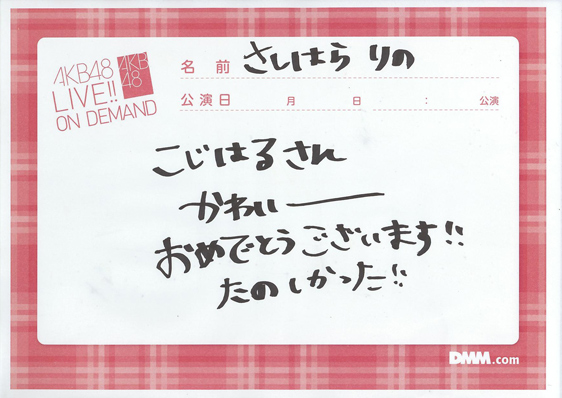 AKB48
LIVE!!
ON DEMAND
AKB
48
名前 さしはら りの
公演日 月 日 : 公演
こじはるさん
かわいー
おめでとうございます!!
たのしかった!!
DMM.com